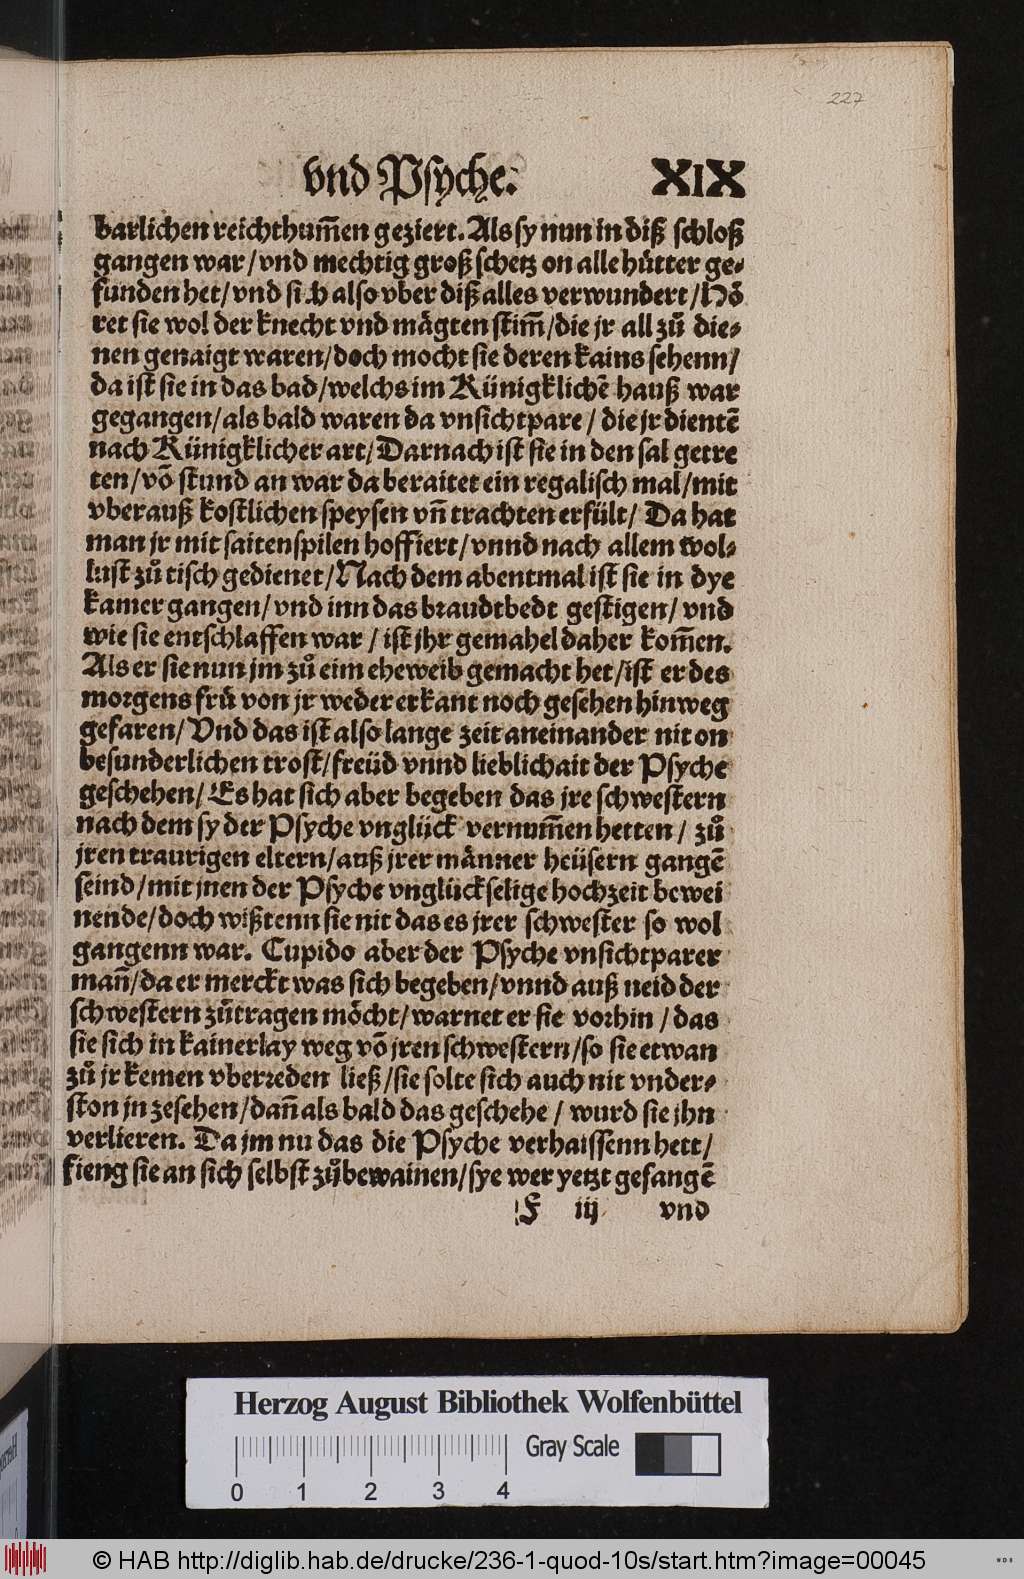 227
vnd Psyche. XIX
barlichen reichthum̃en geziert. Als sy nun in diß schloß
gangen war / vnd mechtig groß schetz on alle hütter ge⸗
funden het / vnd sich also vber diß alles verwundert / Hö
ret sie wol der knecht vnd mägten stim̃ / die jr all zů die⸗
nen genaigt waren / doch mocht sie deren kains sehenn /
da ist sie in das bad / welchs im Künigklichẽ hauß war
gegangen / als bald waren da vnsichtpare / die jr dientẽ
nach Künigklicher art / Darnach ist sie in den sal getre
ten / võ stund an war da beraitet ein regalisch mal / mit
vberauß kostlichen speysen vñ trachten erfült / Da hat
man jr mit saitenspilen hoffiert / vnnd nach allem wol⸗
lust zů tisch gedienet / Nach dem abentmal ist sie in dye
kamer gangen / vnd inn das braudtbedt gestigen / vnd
wie sie entschlaffen war / ist jhr gemahel daher kom̃en.
Als er sie nun jm zů eim eheweib gemacht het / ist er des
morgens frü von jr weder erkant noch gesehen hinweg
gefaren / Vnd das ist also lange zeit aneinander nit on
besunderlichen trost / freüd vnnd lieblichait der Psyche
geschehen / Es hat sich aber begeben das jre schwestern
nach dem sy der Psyche vnglück vernum̃en hetten / zů
jren traurigen eltern / auß jrer männer heüsern gangẽ
seind / mit jnen der Psyche vnglückselige hochzeit bewei
nende / doch wißtenn sie nit das es jrer schwester so wol
gangenn war. Cupido aber der Psyche vnsichtparer
mañ / da er merckt was sich begeben / vnnd auß neid der
schwestern zůtragen möcht / warnet er sie vorhin / das
sie sich in kainerlay weg võ jren schwestern / so sie etwan
zů jr kemen vberreden ließ / sie solte sich auch nit vnder⸗
ston jn zesehen / dañ als bald das geschehe / wurd sie jhn
verlieren. Da jm nu das die Psyche verhaissenn hett /
fieng sie an sich selbst zůbewainen / sye wer yetzt gefangẽ
F iij vnd
Herzog August Bibliothek Wolfenbüttel
Gray Scale
0 1 2 3 4
© HAB http://diglib.hab.de/drucke/236-1-quod-10s/start.htm?image=00045